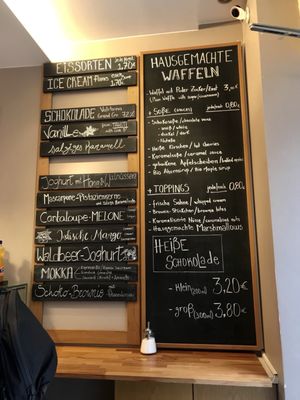 EISSORTEN
1,70€
ICE CREAM flavours
1,70€
SCHOKOLADE
72%
Vanille
salziges Karamell
Joghurt mit Honig & Walnüssen
Mascarpone-Pistaziencreme
Cantaloupe-MELONE
Indische Mango
Waldbeer-Joghurt
MOKKA
Schoko-Brownie
HAUSGEMACHTE
WAFFELN
- Waffel mit Puder Zucker/Zimt 3,10€
(Plain Waffle with sugar/cinnamon)
+ SOßE 0,80€
- Schokosoße/chocolate
- weiß/white
- dunkel/dark
- Nutella
- Heiße Kirschen/hot cherries
- Karamellsoße/caramel sauce
- gebackene Apfelscheiben/baked apples
- Bio Ahornsirup/Bio Maple syrup
+ TOPPINGS 0,80€
- frische Sahne/whipped cream
- Brownie-Stückchen/brownie bites
- Karamellisierte Nüsse/caramelised nuts
- Hausgemachte Marshmallows
HEIßE
SCHOKOLADE
- klein (200ml) 3,20€
- groß (300ml) 3,80€